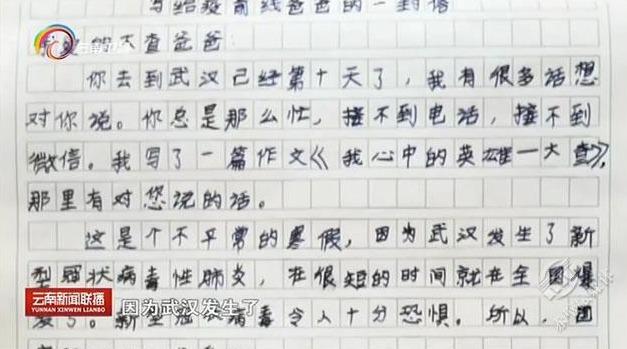 写给疫前线爸爸的一封信
大查爸爸:
你去到武汉已经第十天了，我有很多话想
对你说。你总是那么忙，接不到电话，接不到
微信。我写了一篇作文《我心中的英雄一大查》，
那里有对您说的话。
这是个不平常的寒假，因为武汉发生了新
型冠状病毒性肺炎，在很短的时间就在全国爆
发了。新型冠状病毒令人十分恐惧。所以，国
云南卫视
云南新闻联播
YUNNAN XINWEN LIANBO
因为武汉发生了